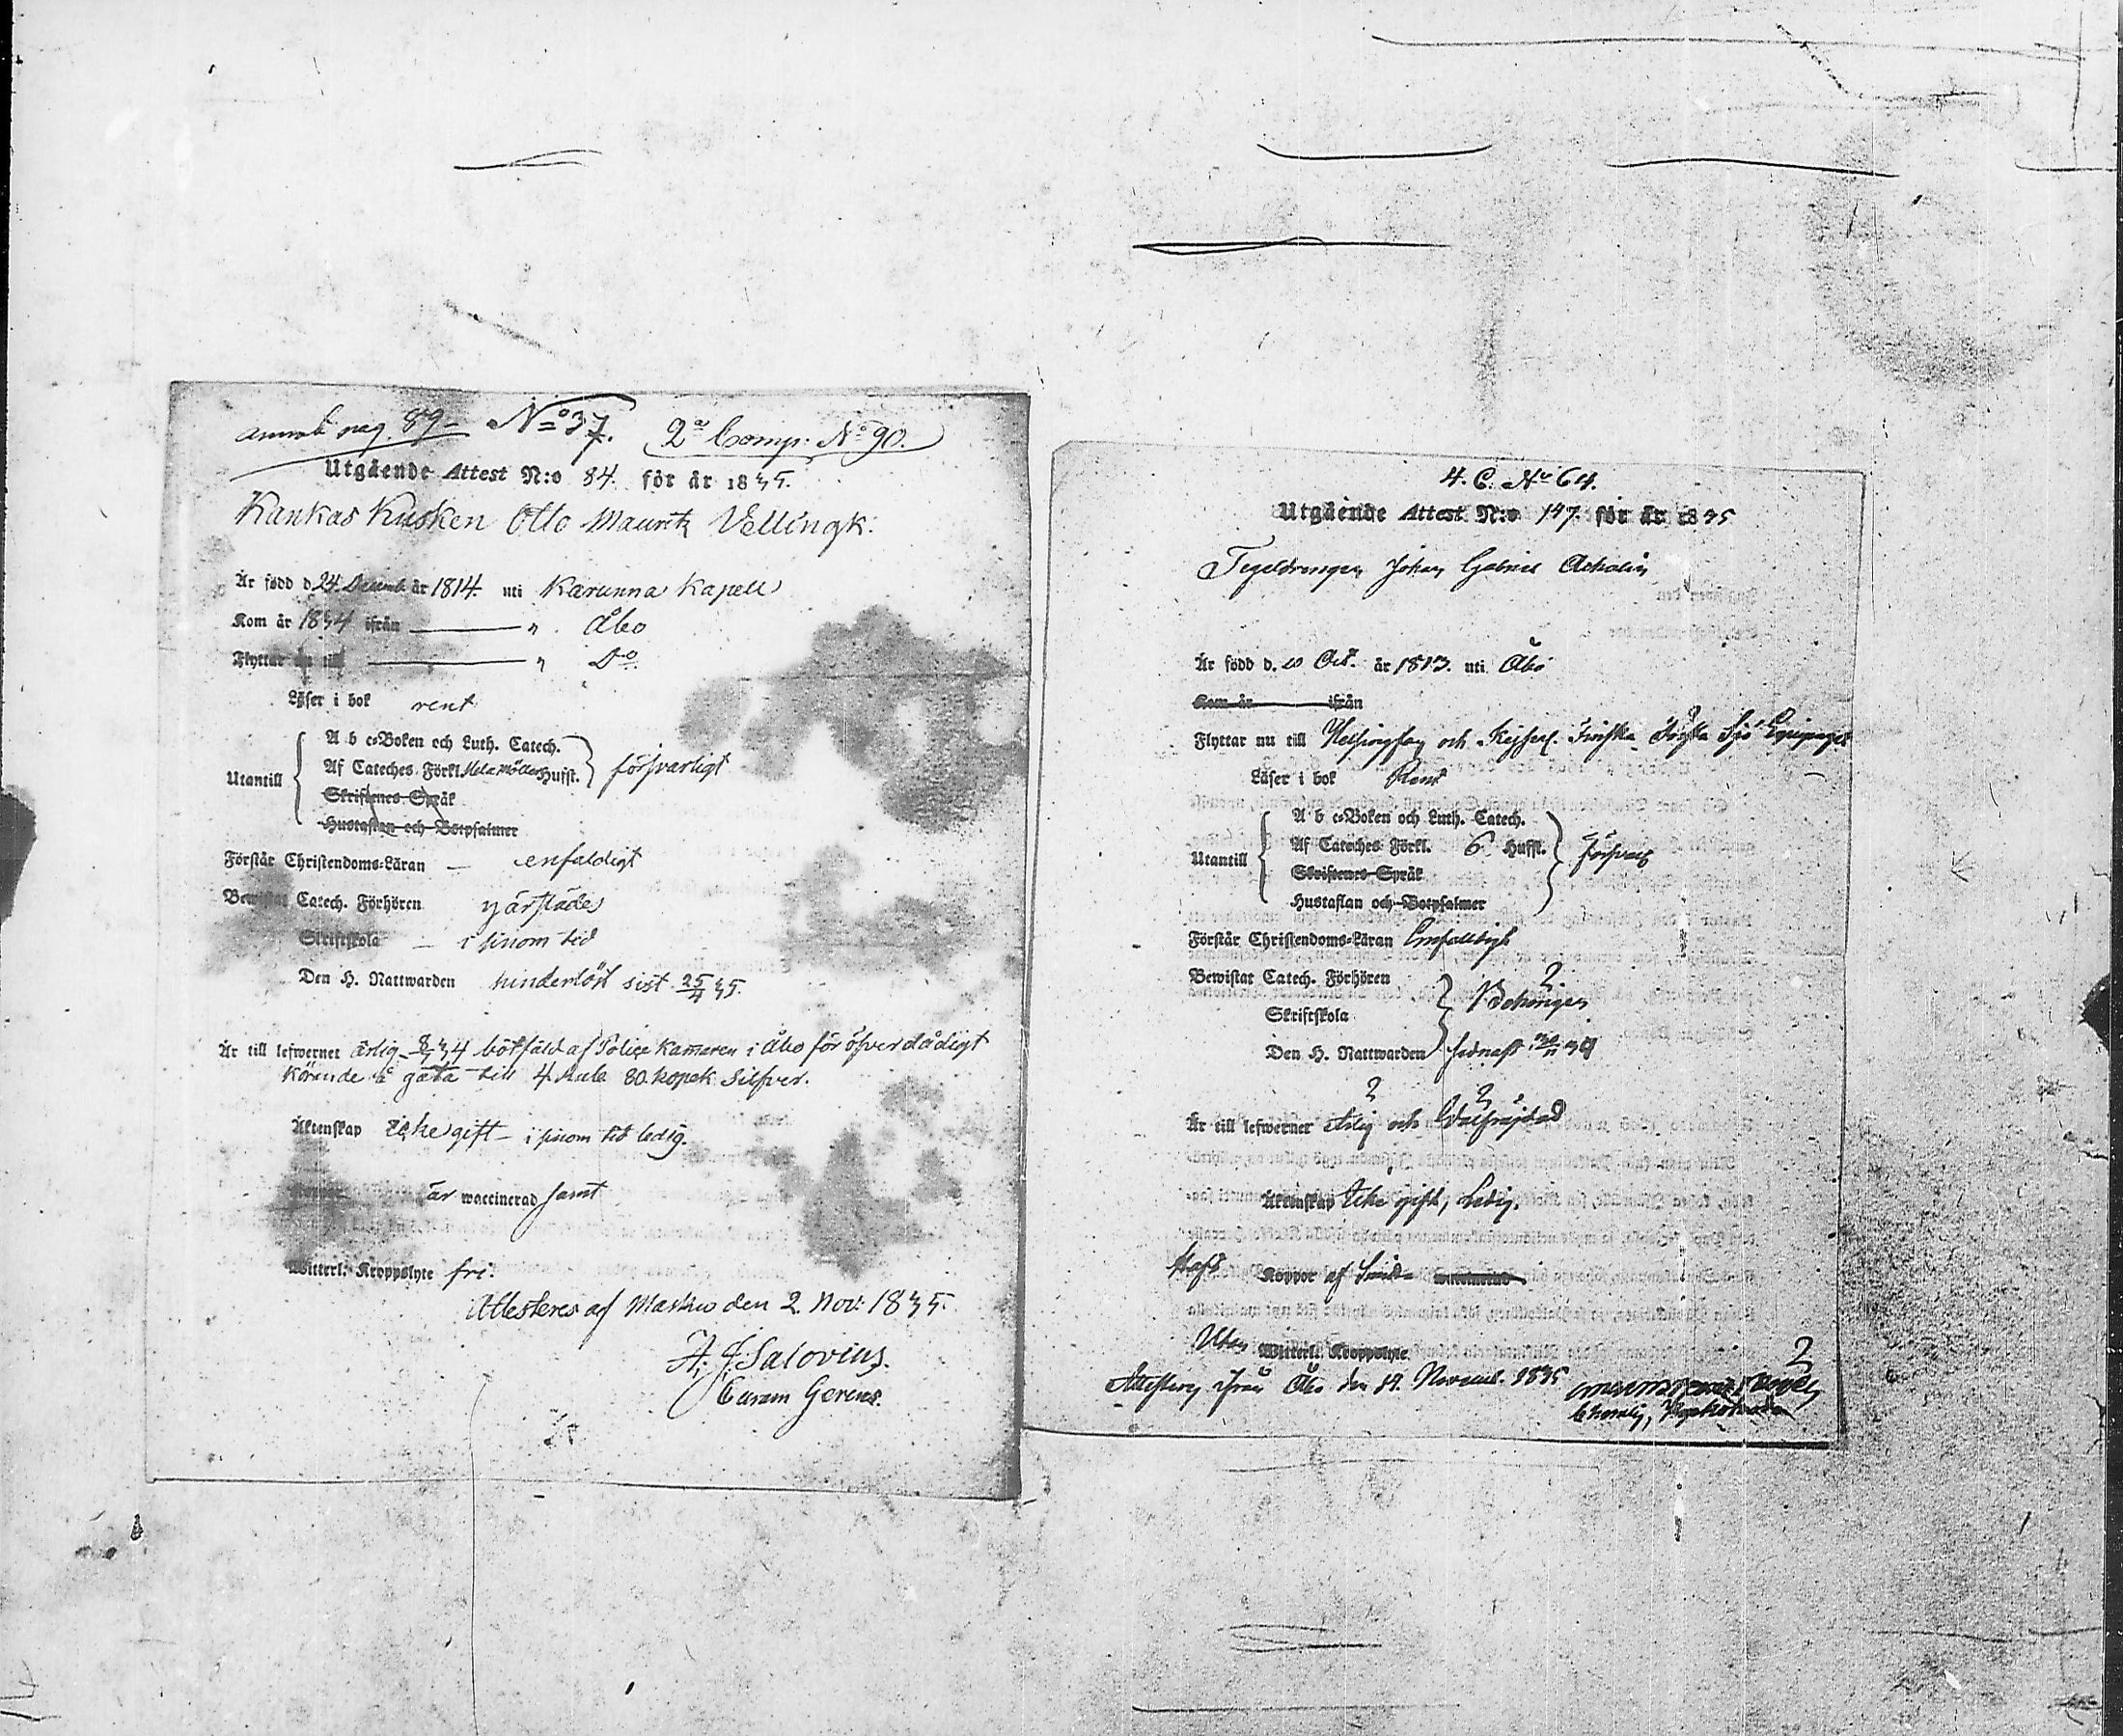 N:o 37. 2:a Comp: N:o 90.
Utgående Attest N:o 84. för år 1835.
Kankas Kusken Otto Mauritz Vellingk.
Är född d. 24 Decemb. år 1814. uti Karunna Kapell
Kom år 1834 ifrån " Åbo
Flyttar nu till " D:o
Läser i bok rent
Utantill
A b c-Boken och Luth. Catech.
Af Cateches. Förkl. Hufst. försvarligt
Skriftenes Språk
Hustaflan och Botpsalmer
Förstår Christendoms-Läran – enfaldigt
Bewistat Catech. Förhören
Skriftskola – i sinom tid
Den H. Nattwarden hinderlöst sist 25/4 35.
Är till lefwernet ärlig – 34 bötfäld af Police Kamaren i Åbo för öfverdådigt
Körande å gata till 4 Rub. 80 kopek Silfver.
Äktenskap icke gift – i sinom tid ledig.
är waccinerad samt
Witterl. Kroppslyte fri.
Attesteras af Masku den 2. Nov: 1835.
H. J. Salovius.
Curam Gerens.
4. C. N:o 64.
Utgående Attest N:o 147. för år 1835
Tegeldrengen Johan Gabriel
Är född d. 10 Oct. år 1813. uti Åbo
Kom år ifrån
Flyttar nu till Helsingfors och Kejserl. Finska Sjö Equipaget
Läser i bok Rent
Utantill
A b c-Boken och Luth. Catech.
Af Cateches Förkl. 6 Hufst. Försvarl
Skriftenes Språk
Hustaflan och Botpsalmer
Förstår Christendoms-Läran Enfaldigt
Bewistat Catech. Förhören
Skriftskola
Den H. Nattwarden sednast
Är till lefwernet ärlig och Wälfräjdad
Äktenskap Icke gift, Ledig.
Haft Koppor af
Utan Witterl. Kroppslyte
Åbo den 19. Novemb. 1835